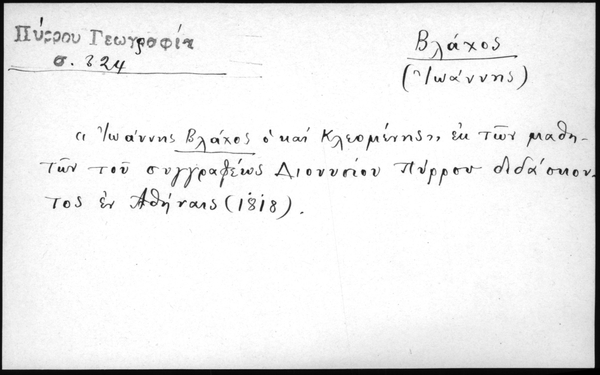 Πύρρου Γεωγραφία
σ. 324
Βλάχος
(Ἰωάννης)
« Ἰωάννης Βλάχος ὁ καί Κλεομένης » ἐκ τῶν μαθη-
τῶν τοῦ συγγραφέως Διονυσίου Πύρρου διδάσκον-
τος ἐν Ἀθήναις (1818).